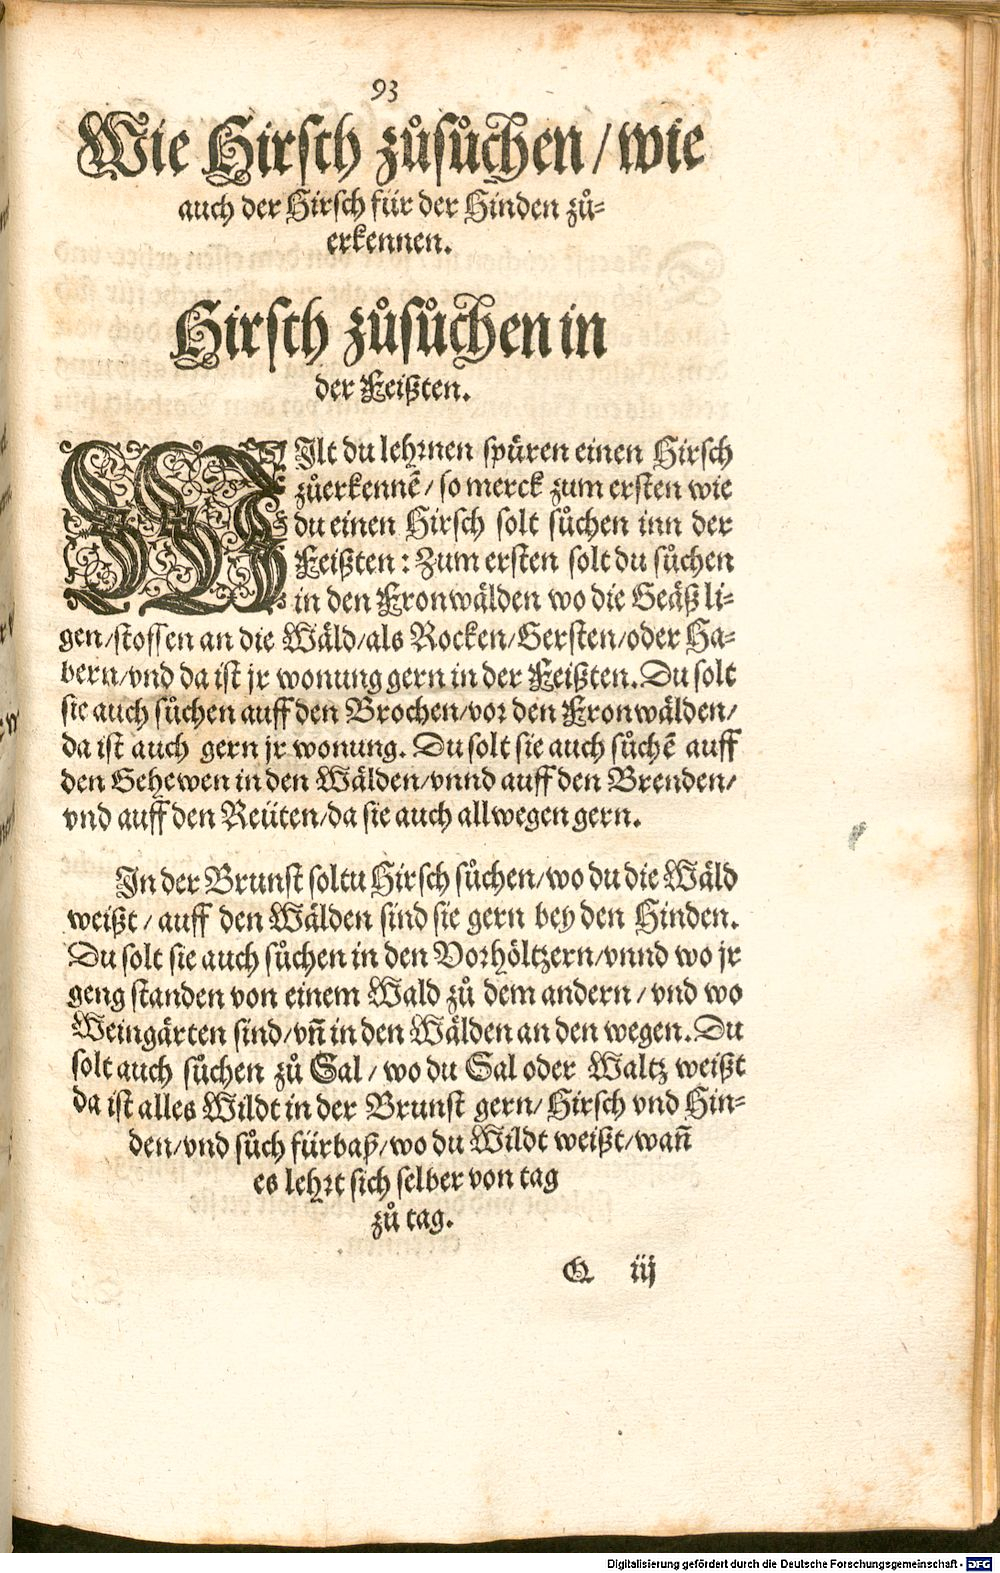 93
Wie Hirsch zůsůchen / wie
auch der Hirsch für der Hinden zů-
erkennen.
Hirsch zůsůchen in
der Feißten.
WIlt du lehrnen spüren einen Hirsch
zůerkennē / so merck zum ersten wie
du einen Hirsch solt sůchen inn der
Feißten: Zum ersten solt du sůchen
in den Fronwälden wo die Geäß li-
gen/stossen an die Wäld/als Rocken/Gersten/oder Ha-
bern/vnd da ist jr wonung gern in der Feißten. Du solt
sie auch sůchen auff den Brochen/vor den Fronwälden/
da ist auch gern jr wonung. Du solt sie auch sůchē auff
den Gehewen in den Wälden/vnnd auff den Brenden/
vnd auff den Reüten/da sie auch allwegen gern.
In der Brunst soltu Hirsch sůchen/wo du die Wäld
weißt / auff den Wälden sind sie gern bey den Hinden.
Du solt sie auch sůchen in den Vorhöltzern/vnnd wo jr
geng standen von einem Wald zů dem andern / vnd wo
Weingärten sind/vn̄ in den Wälden an den wegen. Du
solt auch sůchen zů Sal / wo du Sal oder Waltz weißt
da ist alles Wildt in der Brunst gern/ Hirsch vnd Hin-
den/vnd sůch fürbaß/wo du Wildt weißt/wan̄
es lehrt sich selber von tag
zů tag.
Q iij
Digitalisierung gefördert durch die Deutsche Forschungsgemeinschaft - DFG